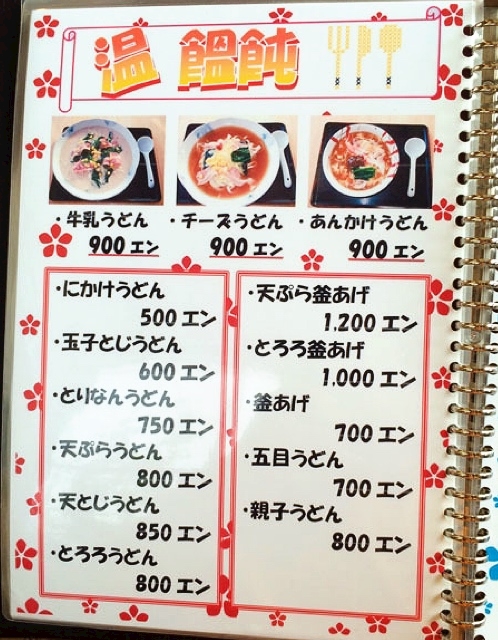 温 饂飩
・牛乳うどん ・チーズうどん ・あんかけうどん
900 エン 900 エン 900 エン
・にかけうどん
500 エン
・玉子とじうどん
600 エン
・とりなんうどん
750 エン
・天ぷらうどん
800 エン
・天とじうどん
850 エン
・とろろうどん
800 エン
・天ぷら釜あげ
1.200 エン
・とろろ釜あげ
1.000 エン
・釜あげ
700 エン
・五目うどん
700 エン
・親子うどん
800 エン